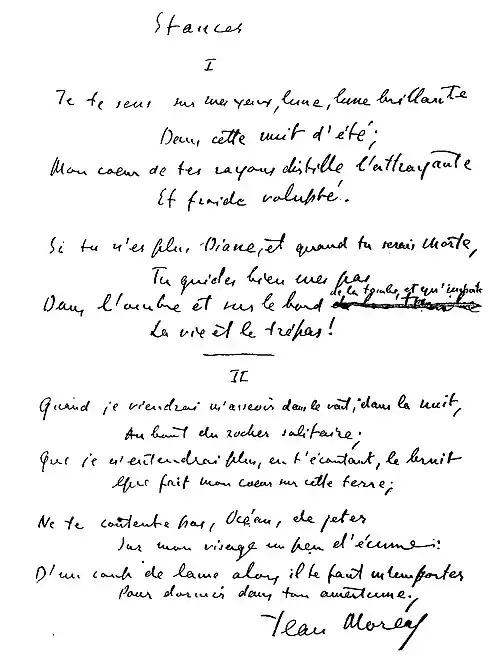 Stances
I
Je te sens sur mes yeux, lune, lune brillante
Dans cette nuit d'été;
Mon coeur de tes rayons distille l'attrayante
Et froide volupté.
Si tu n'es plus Diane, et quand tu serais morte,
Tu guides bien mes pas
de la tombe, et qu'importe
Dans l'ombre et sur le bord
La vie et le trépas!
II
Quand je viendrai m'asseoir dans le vent, dans la nuit,
Au bout du rocher solitaire;
Que je n'entendrai plus, en t'écoutant, le bruit
Que fait mon coeur sur cette terre;
Ne te contente pas, Océan, de jeter
Sur mon visage un peu d'écume:
D'un coup de lame alors il te faut m'emporter
Pour dormir dans ton amertume.
Jean Moréas